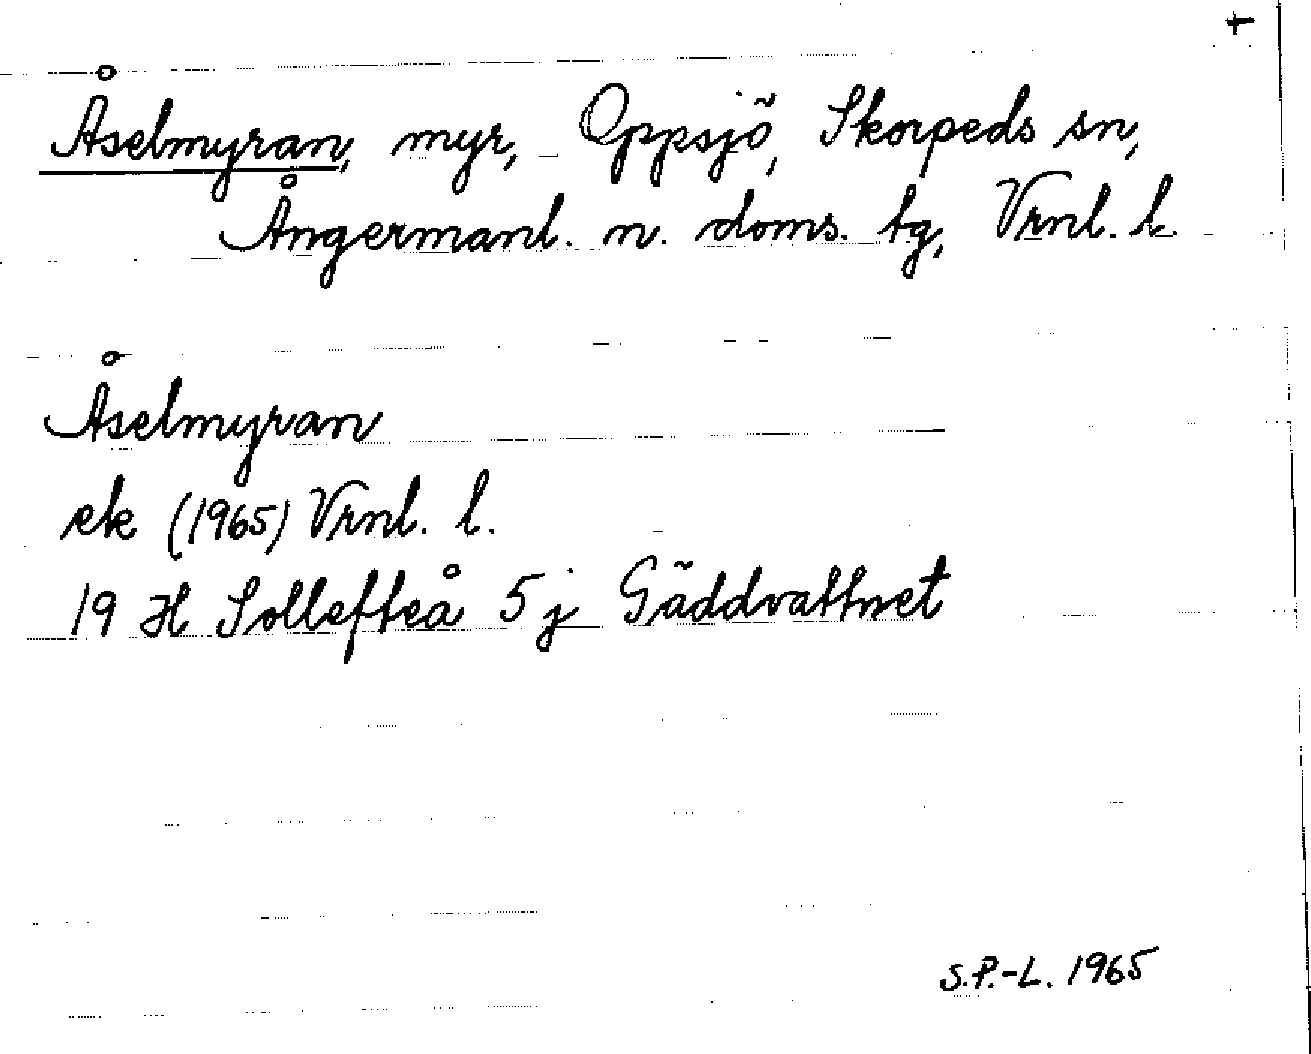 +
Åselmyran, myr, Oppsjö, Skorpeds sn,
Ångermanl. n. doms. tg, Vrnl. l.
Åselmyran
ek (1965) Vrnl. l.
19 H Sollefteå 5 j Gäddvattnet
S.P.-L. 1965